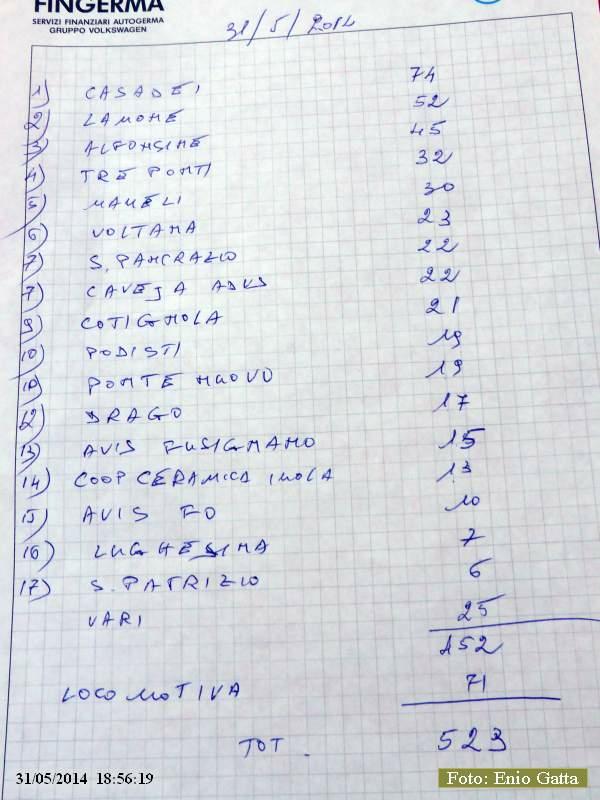 FINGERMA
SERVIZI FINANZIARI AUTOGERMA
GRUPPO VOLKSWAGEN
31/5/2014
1) CASADEI 74
2) LAMONE 52
3) ALFONSINE 45
4) TRE PONTI 32
5) MAMELI 30
6) VOLTANA 23
7) S. PANCRAZIO 22
7) CAVEJA ADVS 22
9) COTIGNOLA 21
10) PODISTI 19
10) PONTE NUOVO 19
12) DRAGO 17
13) AVIS FUSIGNANO 15
14) COOP CERAMICA IMOLA 13
15) AVIS FO 10
16) LUGHESINA 7
17) S. PATRIZIO 6
VARI 25
452
LOCOMOTIVA 71
TOT. 523
31/05/2014 18:56:19
Foto: Enio Gatta